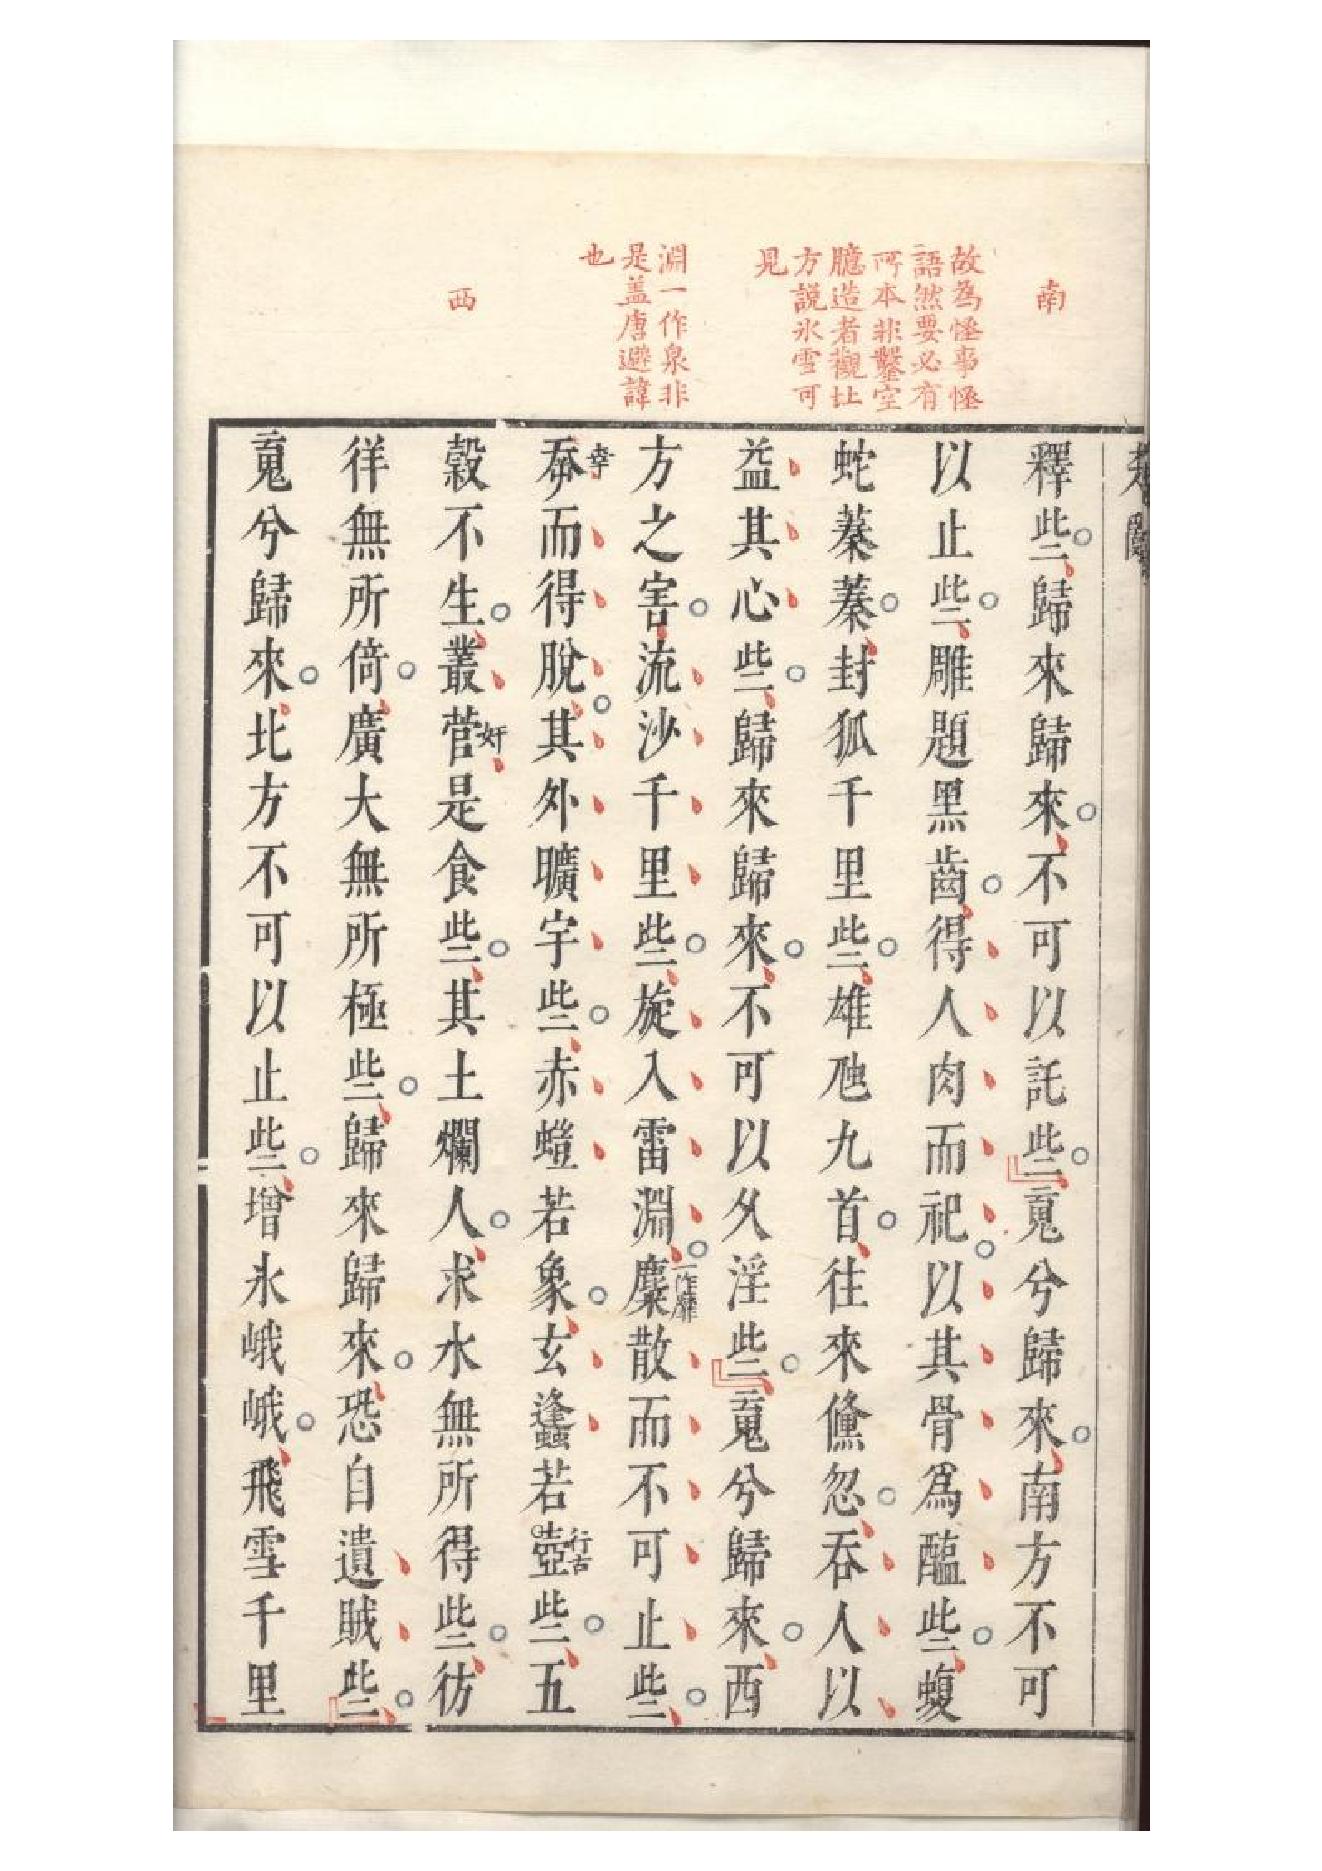 南
故為怪事怪
語然要必有
所本非鑿空
臆造者觀北
方説氷雪可
見
淵一作泉非
是蓋唐避諱
也
西
釋些歸來歸來不可以託些䰟兮歸來南方不可
以止些雕題黑齒得人肉而祀以其骨爲醢些蝮
蛇蓁蓁封狐千里些雄虺九首往來儵忽吞人以
益其心些歸來歸來不可以久淫些䰟兮歸來西
方之害流沙千里些旋入雷淵麋一作靡散而不可止些
幸而得脫其外曠宇些赤螘若象玄蠭若壺行古些五
穀不生叢菅奸是食些其土爛人求水無所得些彷
徉無所倚廣大無所極些歸來歸來恐自遺賊些
䰟兮歸來北方不可以止些增氷峨峨飛雪千里